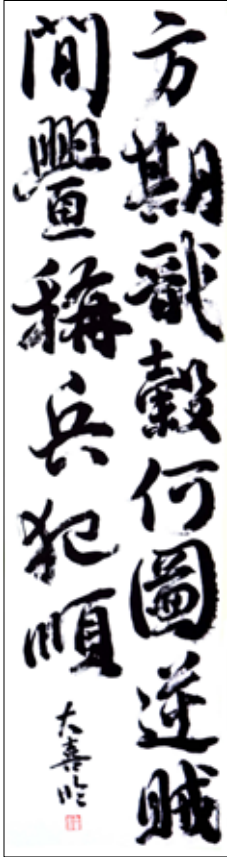 方期戩穀何圖逆賊
間舋稱兵犯順
大喜臨